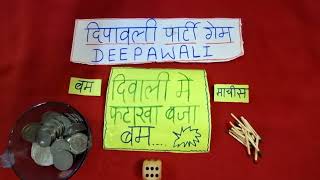 दिपावली पार्टी गेम
DEEPAWALI
बम
माचीस
दिवाली मे
फटाखा बजा
बम....